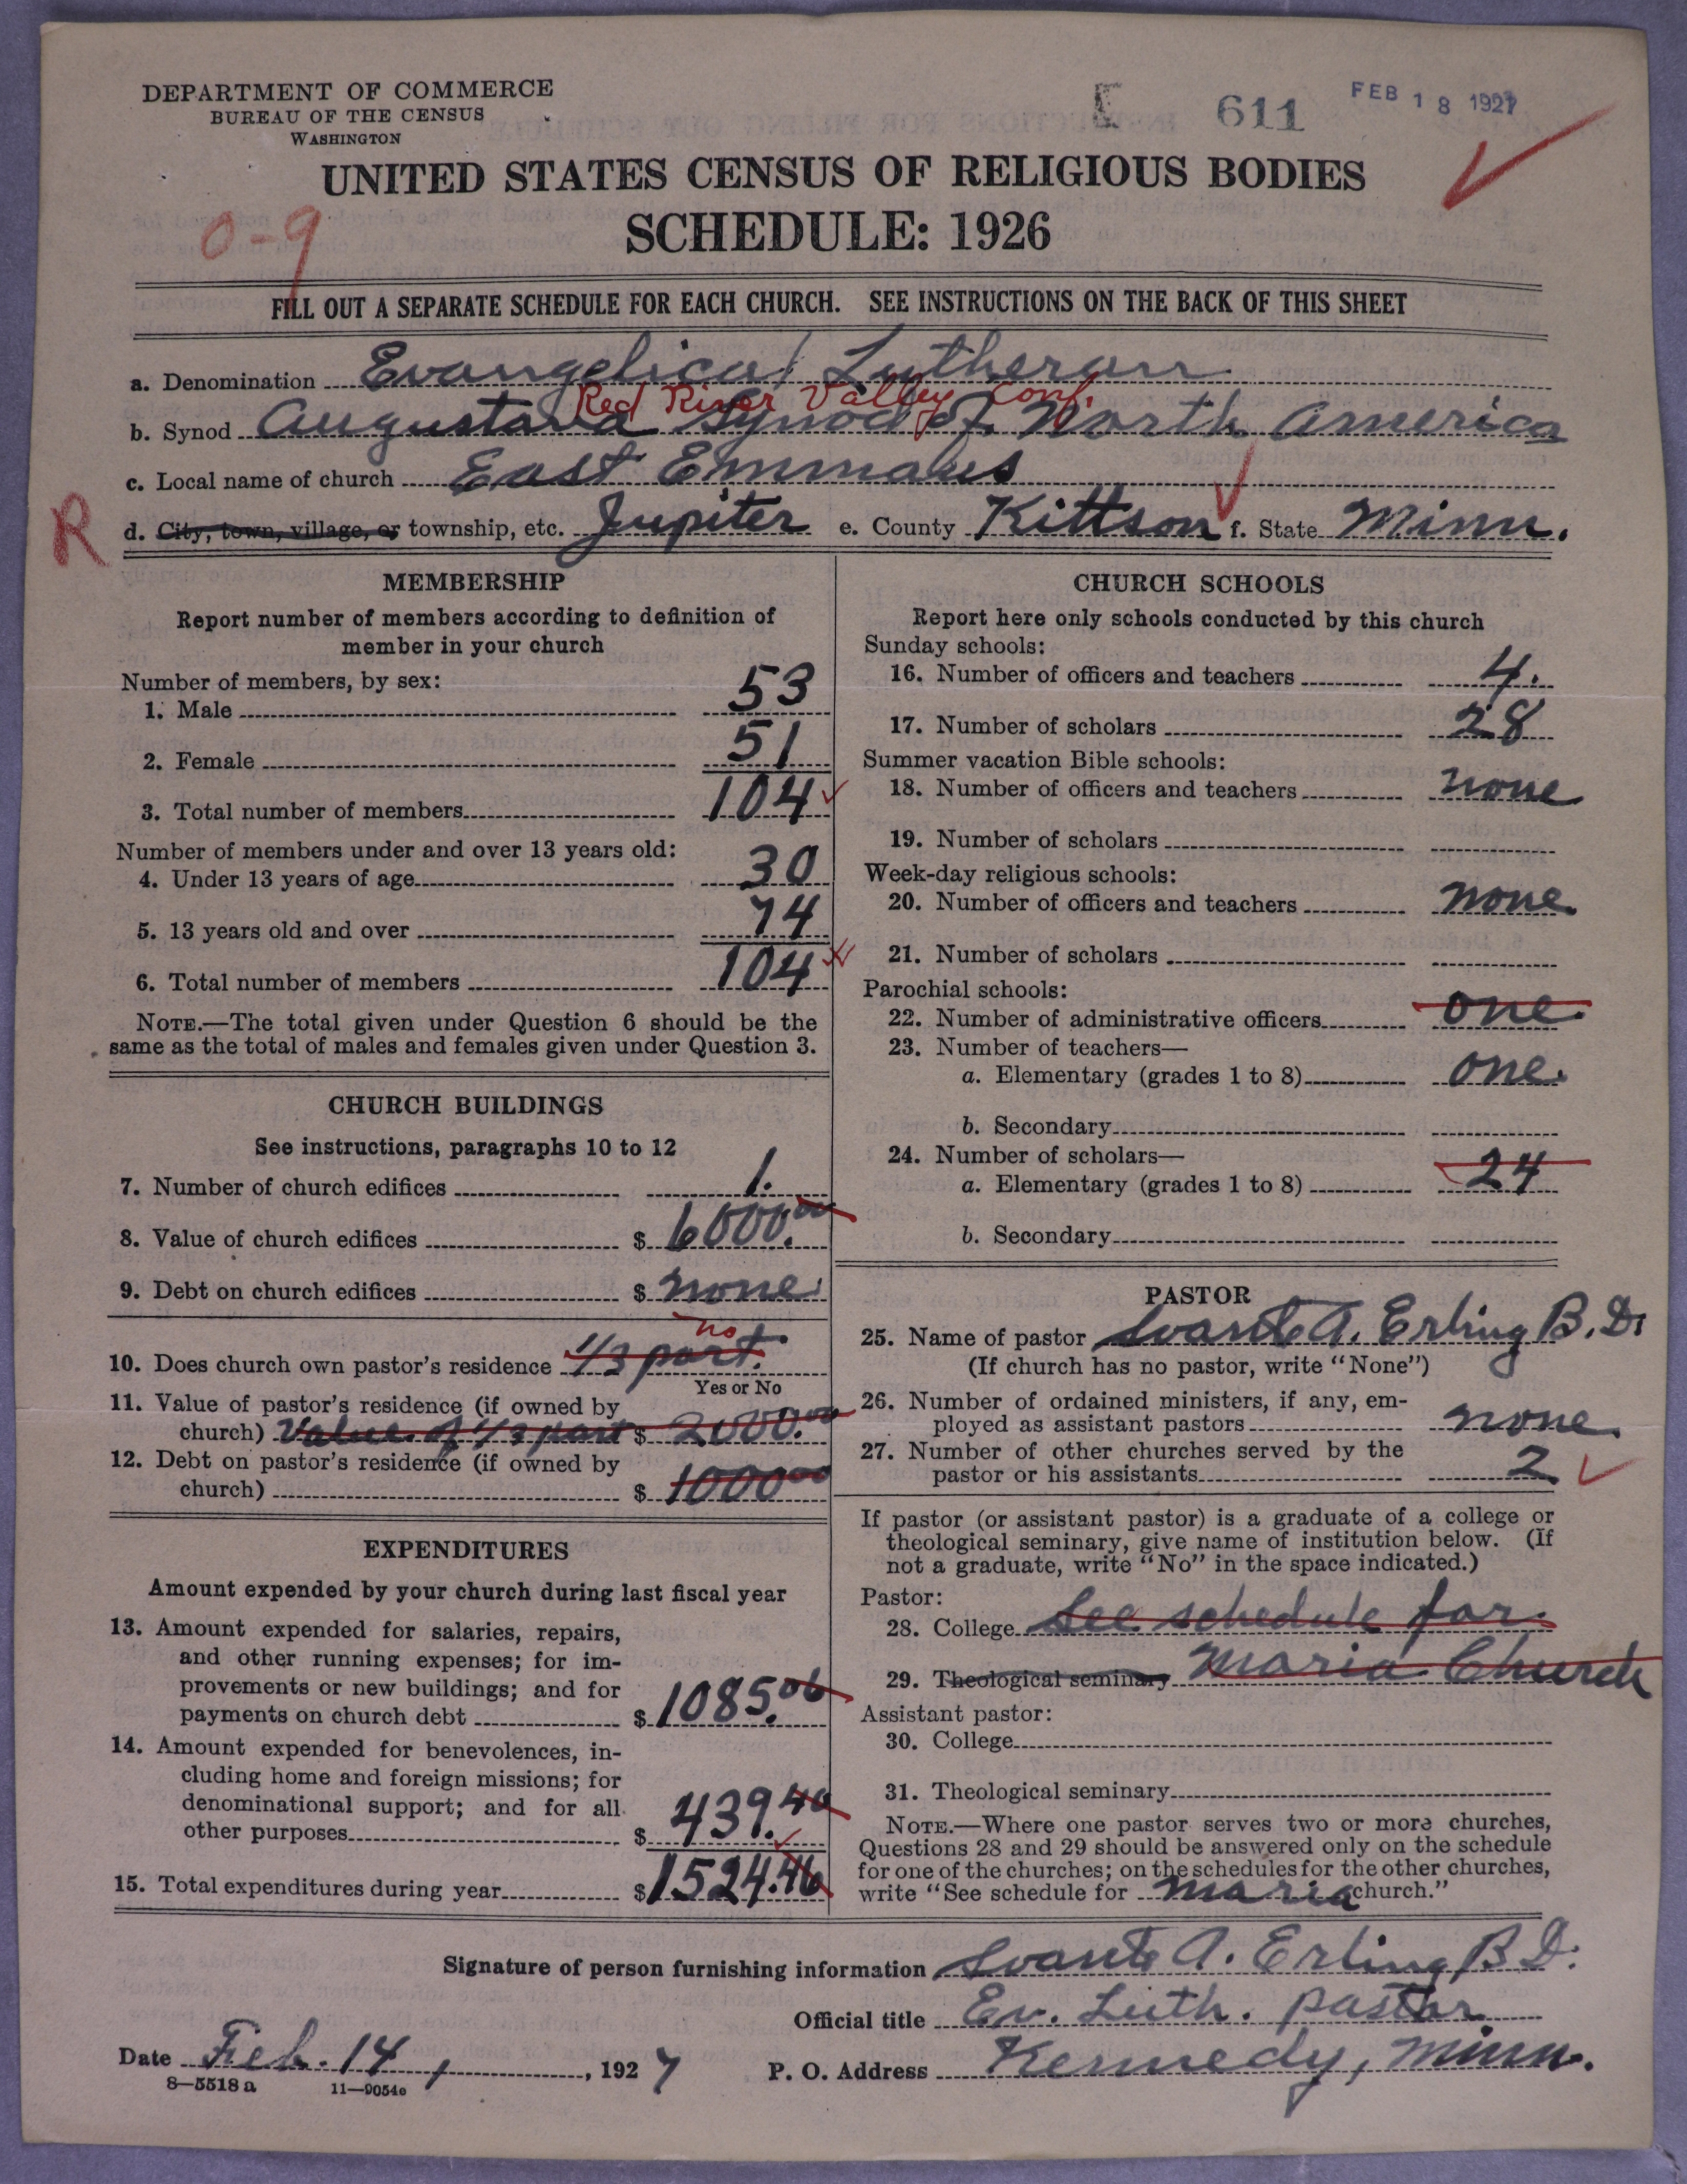 DEPARTMENT OF COMMERCE
BUREAU OF THE CENSUS
WASHINGTON
E 611 FEB 18 1927
UNITED STATES CENSUS OF RELIGIOUS BODIES
SCHEDULE: 1926
0-9
FILL OUT A SEPARATE SCHEDULE FOR EACH CHURCH. SEE INSTRUCTIONS ON THE BACK OF THIS SHEET
a. Denomination Evangelical Lutheran
Red River Valley Conf.
b. Synod Augustana Synod of North America
c. Local name of church East Emmaus
R d. City, town, village, or township, etc. Jupiter e. County Kittson f. State Minn.
MEMBERSHIP
Report number of members according to definition of
member in your church
Number of members, by sex:
1. Male 53
2. Female 51
3. Total number of members 104
Number of members under and over 13 years old:
4. Under 13 years of age 30
5. 13 years old and over 74
6. Total number of members 104
NOTE.—The total given under Question 6 should be the
same as the total of males and females given under Question 3.
CHURCH BUILDINGS
See instructions, paragraphs 10 to 12
7. Number of church edifices 1.
8. Value of church edifices $ 6000.00
9. Debt on church edifices $ none
no
10. Does church own pastor's residence 1/3 part.
Yes or No
11. Value of pastor's residence (if owned by
church) Value of 1/3 part $ 2000.00
12. Debt on pastor's residence (if owned by
church) $ 1000 00
EXPENDITURES
Amount expended by your church during last fiscal year
13. Amount expended for salaries, repairs,
and other running expenses; for im-
provements or new buildings; and for
payments on church debt $ 1085.06
14. Amount expended for benevolences, in-
cluding home and foreign missions; for
denominational support; and for all
other purposes $ 439.40
15. Total expenditures during year $ 1524.46
CHURCH SCHOOLS
Report here only schools conducted by this church
Sunday schools:
16. Number of officers and teachers 4.
17. Number of scholars 28
Summer vacation Bible schools:
18. Number of officers and teachers none
19. Number of scholars
Week-day religious schools:
20. Number of officers and teachers none
21. Number of scholars
Parochial schools:
22. Number of administrative officers one.
23. Number of teachers—
a. Elementary (grades 1 to 8) one.
b. Secondary
24. Number of scholars—
a. Elementary (grades 1 to 8) 24
b. Secondary
PASTOR
25. Name of pastor Svante A. Erling B.D.
(If church has no pastor, write "None")
26. Number of ordained ministers, if any, em-
ployed as assistant pastors none.
27. Number of other churches served by the
pastor or his assistants 2
If pastor (or assistant pastor) is a graduate of a college or
theological seminary, give name of institution below. (If
not a graduate, write "No" in the space indicated.)
Pastor:
28. College See schedule for
29. Theological seminary Maria Church
Assistant pastor:
30. College
31. Theological seminary
NOTE.—Where one pastor serves two or more churches,
Questions 28 and 29 should be answered only on the schedule
for one of the churches; on the schedules for the other churches,
write "See schedule for Maria church."
Signature of person furnishing information Svante A. Erling B D.
Official title Ev. Luth. pastor
Date Feb. 14, 1927 P. O. Address Kennedy, Minn.
8—5518 a 11—9054e